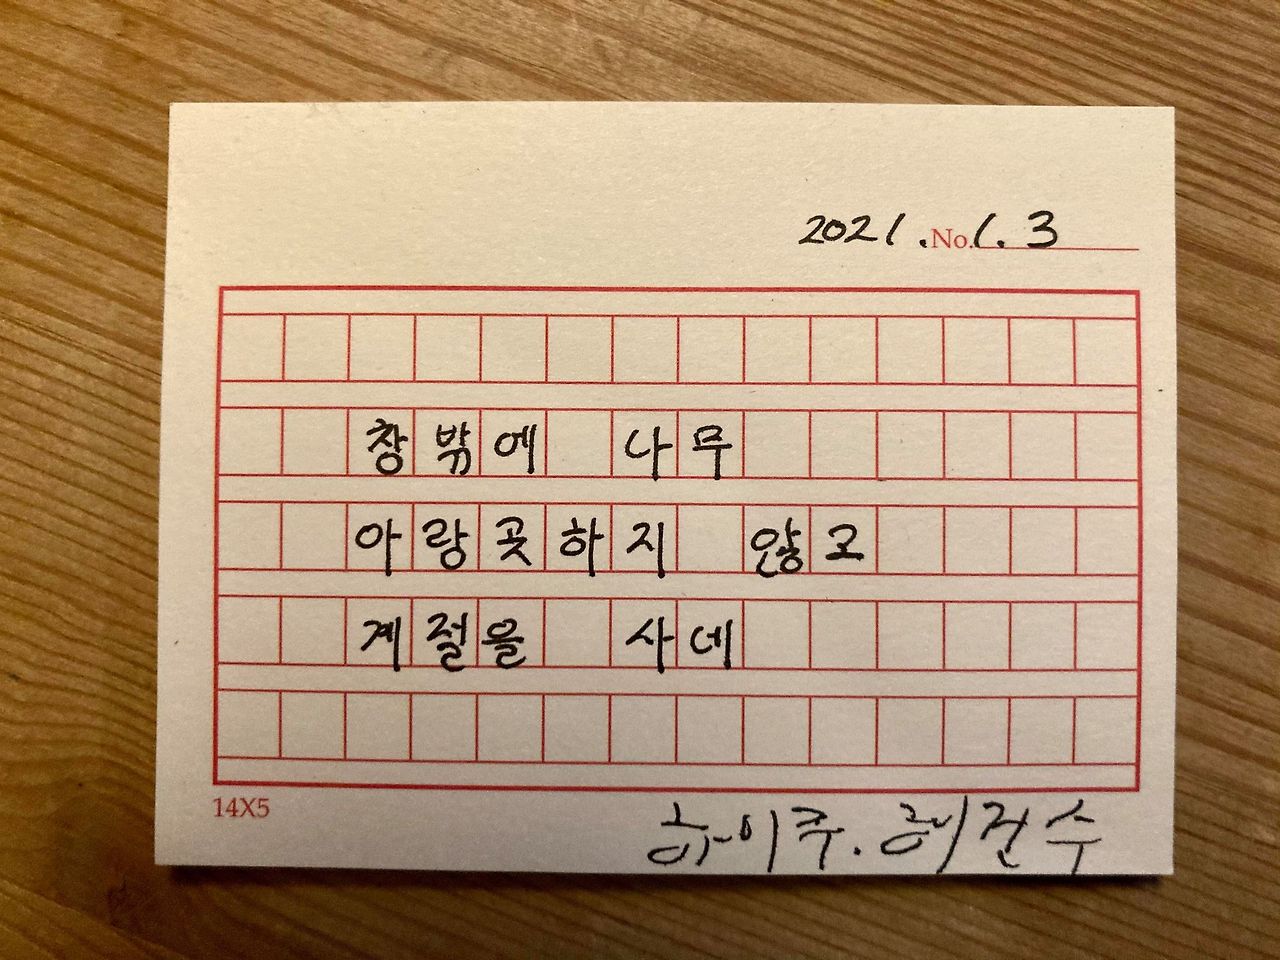 2021. No. 1. 3
창밖에 나무
아랑곳하지 않고
계절을 사네
14X5
하이쿠.